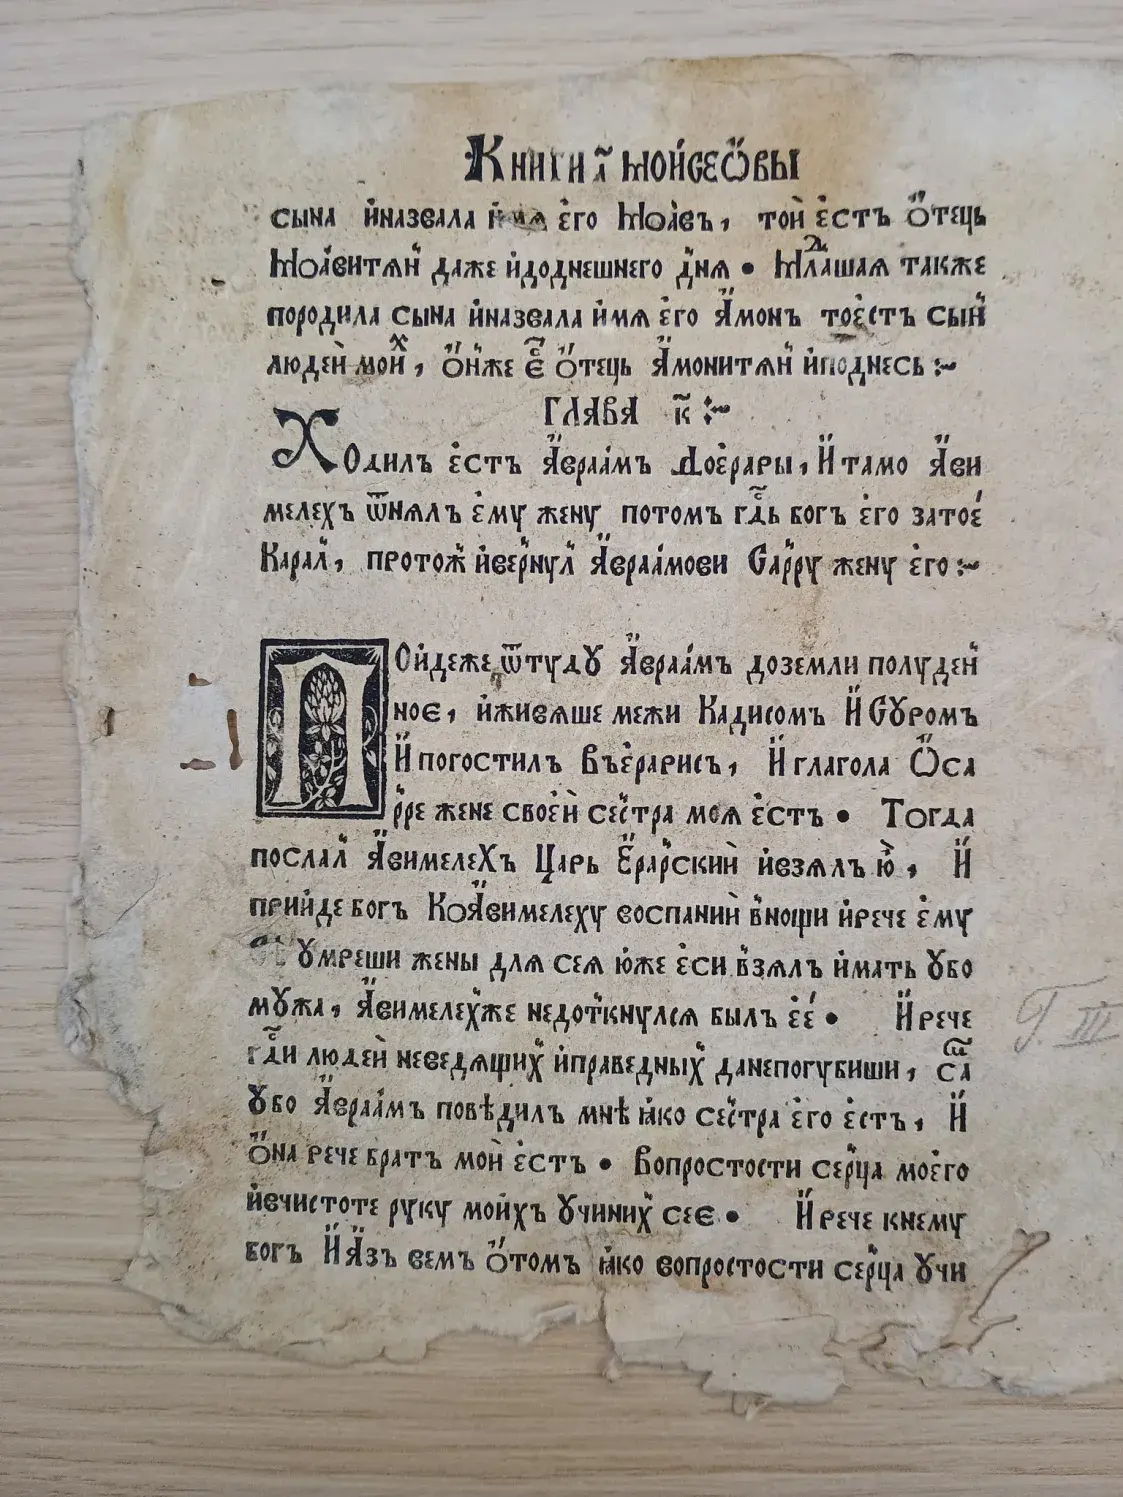 Книги а҃ Мойсеѡ҆вы
сына и҆назвала и҆мя є҆го Моа҆въ, той є҆стъ ѻ҆́тець
Моа҆витѧн҆ даже и҆доднешнего дн҆ѧ • Млⷣашаѧ также
породила сына и҆назвала и҆мѧ є҆го А҆́монъ тоє҆стъ сын҆
людей мои҆ⷯ, ѻ҆́н҆же є҆сⷮ ѻ҆́тець А҆́монитѧн҆ и҆поднесь :~
ГЛАВА к҃ :~
Ходилъ є҆стъ А҆́враа҆мъ Доє҆рары, И҆́тамо А҆́ви
мелехъ ѿнѧлъ є҆му жену потомъ гдⷭ҇ь богъ є҆го затоє҆́
Карал҆, протож҆ и҆вер҆нул҆ А҆́враа҆мови Сар҆ру жену є҆го :~
Пойдеже ѿтудꙋ А҆́враа҆мъ доземли полуден҆
ноє, и҆живѧше межи Кадисомъ И҆́ Сꙋромъ
И҆́погостилъ Въє҆рарисъ, И҆́глагола Ѡ҆́са
р҆ре жене своє҆й сес҆тра моѧ є҆стъ • Тогда
послал҆ А҆́вимелеХъ Царь Є҆́рар҆ский и҆взѧлъ ю҆̀, И҆́
прийде богъ КоА҆́вимелеху воспаний в҆нощи и҆рече є҆му
ꙋмреши жены длѧ сеѧ ю҆же є҆си в҆зѧлъ и҆мать ꙋбо
мꙋжа, А҆́вимелех҆же недот҆кнулсѧ былъ є҆є҆́ • И҆́рече
гдⷭ҇и людей неведѧщих҆ и҆праведных҆ данепогубиши, сѿа
ꙋбо А҆́враа҆мъ повѣдилъ мнѣ ꙗ҆ко сес҆тра є҆го є҆стъ, И҆́
ѻ҆́на рече братъ мой є҆стъ • Вопростости сер҆ца моє҆го
и҆вчистоте руку мои҆хъ ꙋчиних҆ сеє • И҆́рече кнему
богъ И҆́ А҆́зъ вемъ ѻ҆́томъ ꙗ҆ко вопростости сер҆ца ꙋчи